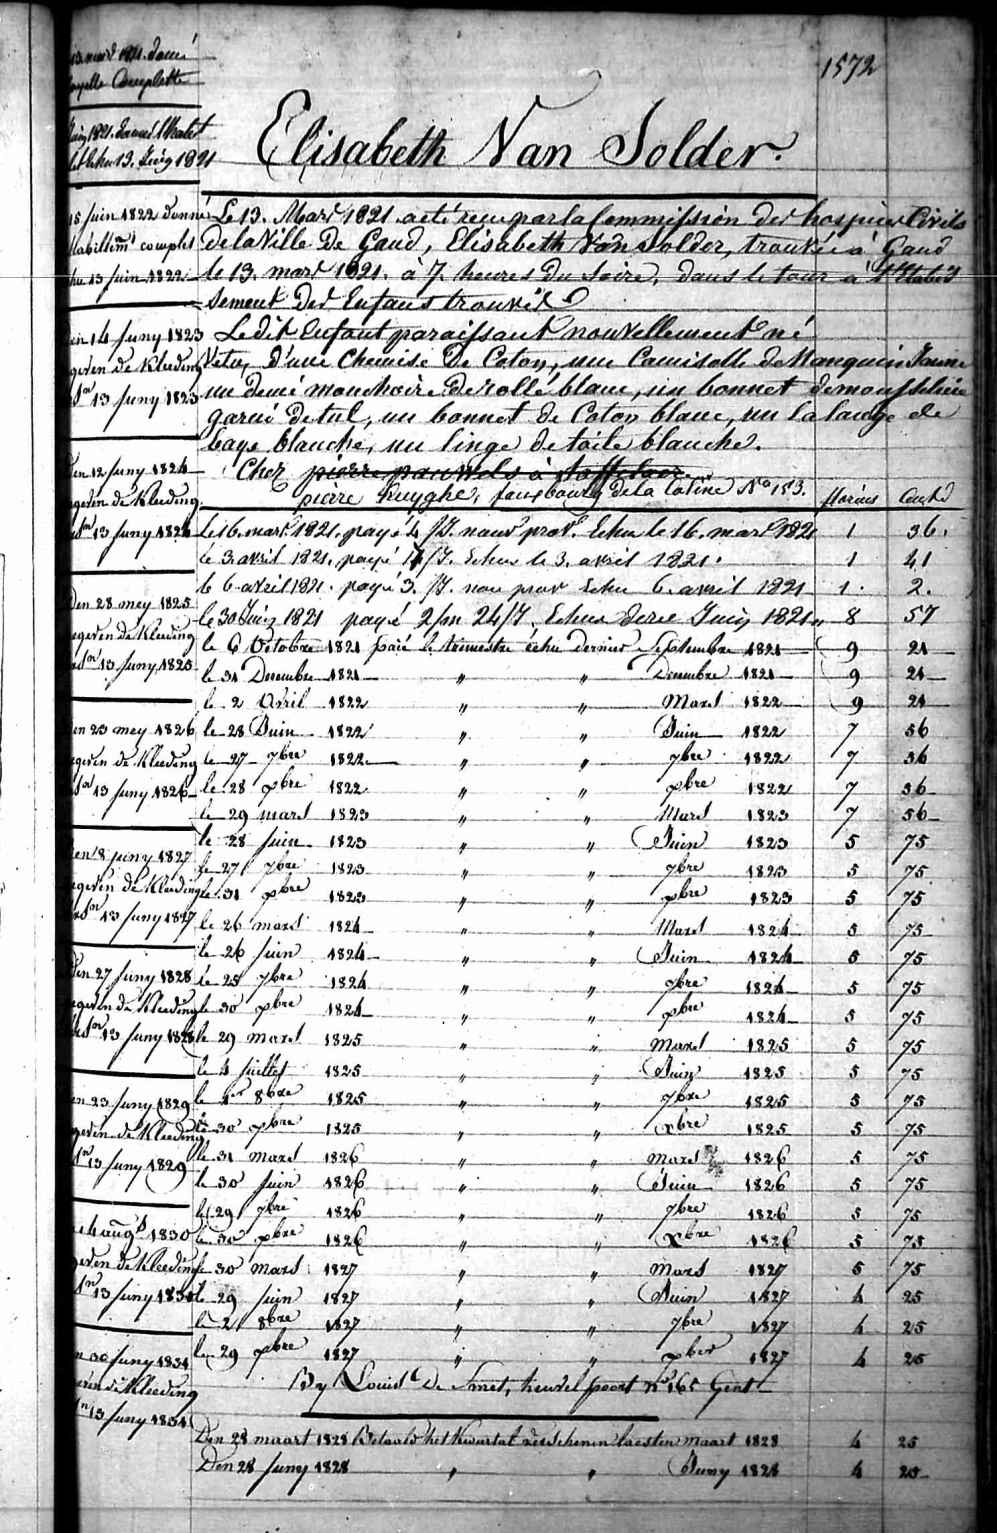 1572
13 mars 1821. donné
layette Complette
Juin 1821. donné
13. Juin 1821
15 Juin 1822 donné
habillemt complet
échu 13 juin 1822
den 14 Juny 1823
gegeven de Kleeding
13 Juny 1823
den 12 Juny 1824
gegeven de Kleeding
13 Juny 1824
den 28 mey 1825
gegeven de Kleeding
13 Juny 1825
den 23 mey 1826
gegeven de Kleeding
13 Juny 1826
den 8 juny 1827
gegeven de Kleeding
13 Juny 1827
den 27 Juny 1828
gegeven de Kleeding
13 Juny 1828
den 23 Juny 1829
gegeven de Kleeding
13 Juny 1829
4 augt 1830
gegeven de Kleeding
13 Juny 1830
den 30 Juny 1831
gegeven de Kleeding
13 Juny 1831
Elisabeth Van Solder.
Le 13. Mars 1821 a été reçu par la Commission des hospices Civils
de la Ville de Gand, Elisabeth Van Solder, trouvée à Gand
le 13. mars 1821. à 7 heures du soire, dans le tour à l'Etablis
sement des Enfans trouvés
Ledit Enfant paraissant nouvellement né
Vetu, d'une Chemise De Coton, une Camisolle de Nanquin Jaune
un demi mouchoire De rollé blanc, un bonnet de mousseline
garni de tul, un bonnet de Coton blanc, un lalange de
baye blanche, un linge de toile blanche.
Chez pierre pauwels à
pierre huyghe, fauxbourg de la Coline No 153. florins Cents
Le 16. mars 1821. payé 4 /J. nouv prove. Echu le 16. mars 1821 1 36.
le 3. avril 1821. payé /J. Echu le 3. avril 1821. 1 41
le 6 avril 1821. payé 3. /J. nou prov Echu 6. avril 1821 1. 2.
le 30 Juin 1821 payé 2/m 24/J. Echus Juin 1821 8 57
le 6 Octobre 1821 paié le trimestre échu dernier Septembre 1821 9 21
le 31 Decembre 1821 " " Decembre 1821 9 21
le 2 Avril 1822 " " Mars 1822 9 21
le 28 Juin 1822 " " Juin 1822 7 56
le 27 7bre 1822 " " 7bre 1822 7 56
le 28 xbre 1822 " " xbre 1822 7 56
le 29 mars 1823 " " Mars 1823 7 56
le 28 juin 1823 " " Juin 1823 5 75
le 27 7bre 1823 " " 7bre 1823 5 75
le 31 xbre 1823 " " xbre 1823 5 75
le 26 mars 1824 " " Mars 1824 5 75
le 26 juin 1824 " " Juin 1824 5 75
le 25 7bre 1824 " " 7bre 1824 5 75
le 30 xbre 1824 " " xbre 1824 5 75
le 29 mars 1825 " " Mars 1825 5 75
le 4 juillet 1825 " " Juin 1825 5 75
le 1er 8bre 1825 " " 7bre 1825 5 75
le 30 xbre 1825 " " xbre 1825 5 75
le 31 mars 1826 " " mars 1826 5 75
le 30 juin 1826 " " Juin 1826 5 75
le 29 7bre 1826 " " 7bre 1826 5 75
le 30 xbre 1826 " " Xbre 1826 5 75
le 30 mars 1827 " " Mars 1827 5 75
le 29 juin 1827 " " Juin 1827 4 25
le 2 8bre 1827 " " 7bre 1827 4 25
le 29 xbre 1827 " " xber 1827 4 25
By Louis De Smet, heuvel poort No 165 Gent
Den 28 maart 1828 Betaald het Kwartal verschenen laesten maart 1828 4 25
Den 28 Juny 1828 " " Juny 1828 4 25